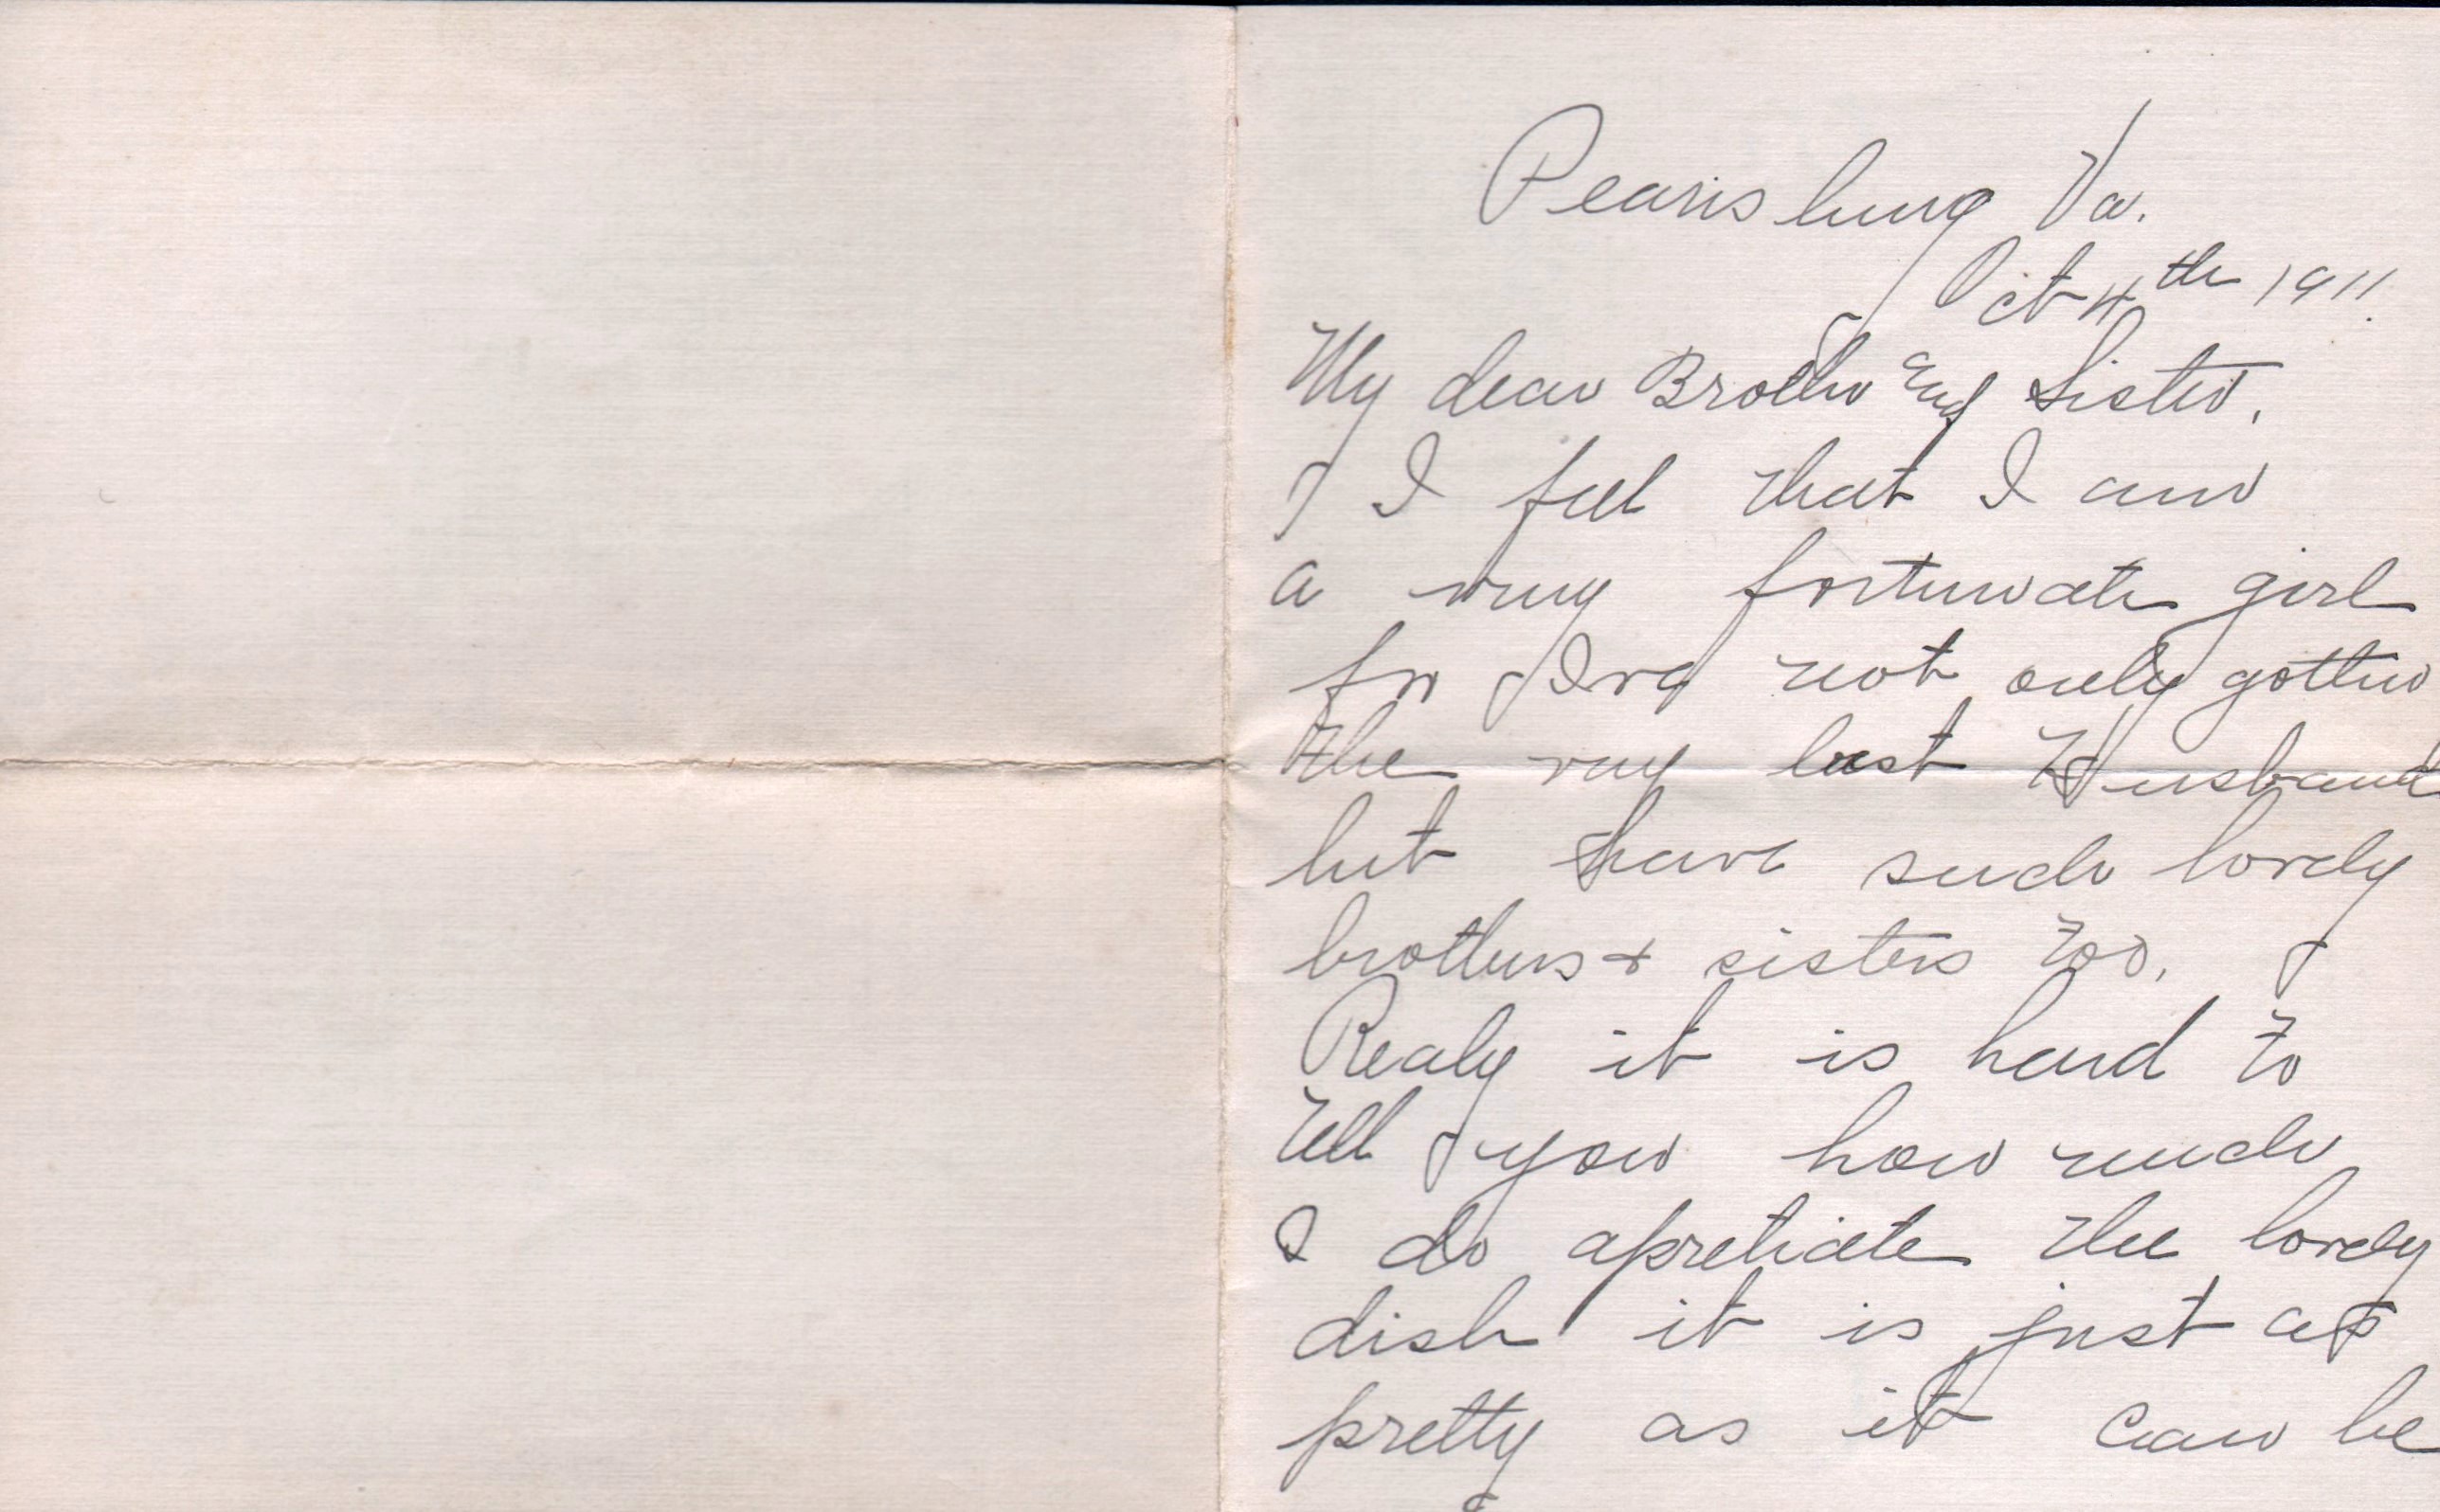 Pearisburg Va.
Oct 4th 1911.
My dear Brother and Sister,
I feel that I am
a very fortunate girl
for Ive not only gotten
the very best Husband
but have such lovely
brothers + sisters too.
Realy it is hard to
tell you how much
I do apretiate the lovely
dish it is just as
pretty as it can be